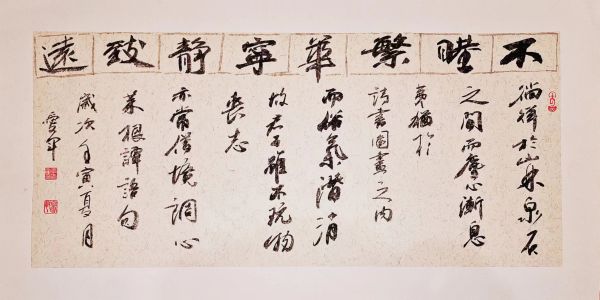 不繁華寧静致遠
徜徉於山林泉石
之間而塵心漸息
夷猶於
詩書圖畫之内
而俗氣潛消
故君子雖不玩物
喪志
亦常借境調心
菜根譚語句
歲次壬寅夏月